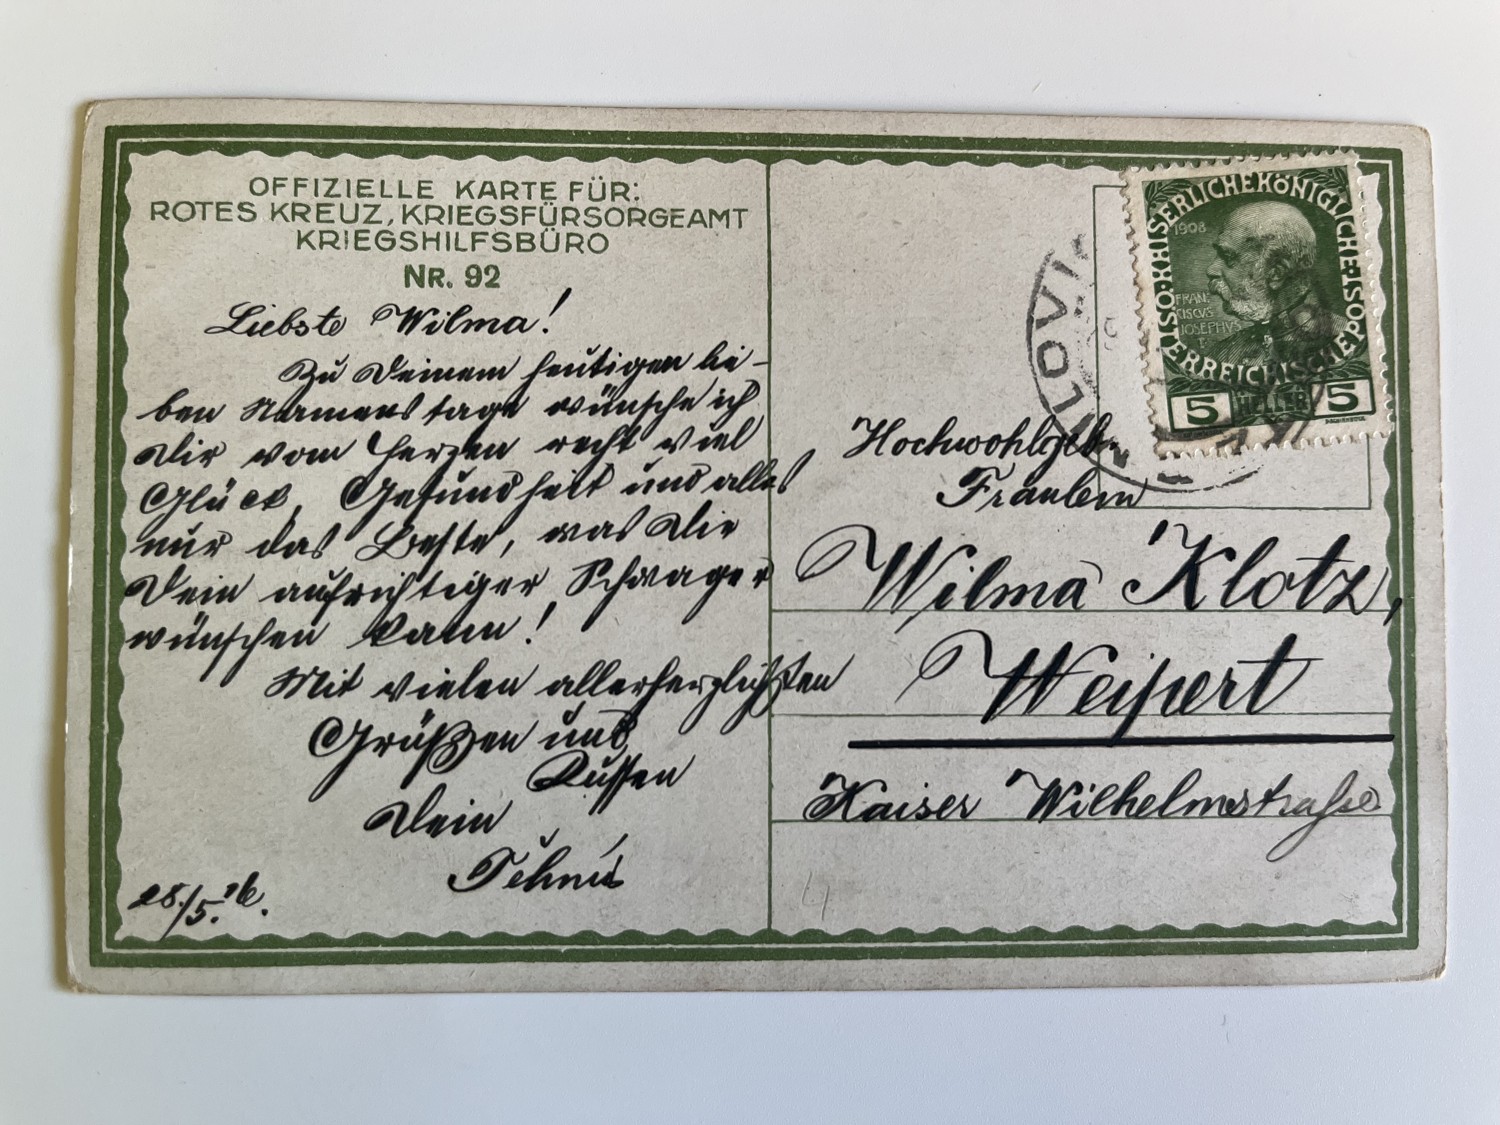 OFFIZIELLE KARTE FÜR:
ROTES KREUZ, KRIEGSFÜRSORGEAMT
KRIEGSHILFSBÜRO
NR. 92
Liebste Wilma!
Zu Deinem heutigen lie-
ben Namenstage wünsche ich
Dir vom Herzen recht viel
Glück, Gesundheit und alles
nur das Beste, was Dir
Dein aufrichtiger Schwager
wünschen kann!
Mit vielen allerherzlichsten
Grüßen und
Küssen
Dein
28./5.
KAISERLICHEKÖNIGLICHE
ÖSTERREICHISCHE POST
1908
FRAN
CISCVS
IOSEPHVS
I
5 HELLER 5
LOVI
Hochwohlgeb.
Fräulein
Wilma Klotz,
Weipert
Kaiser Wilhelmstraße